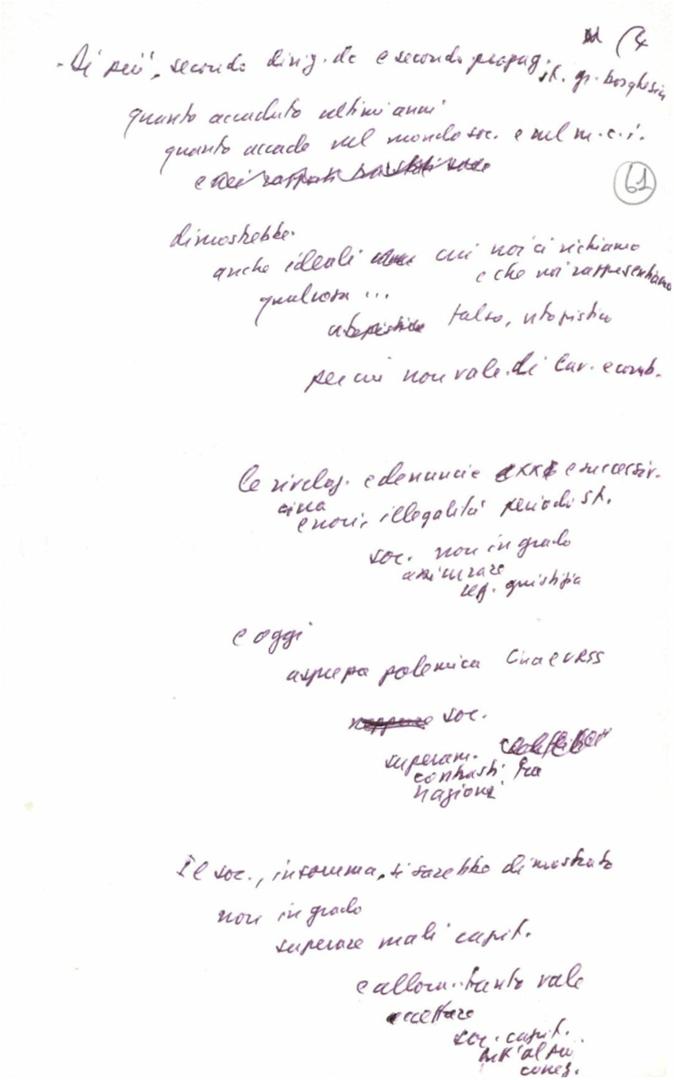 14
- Di più, secondo dirig. dc e secondo propag.
st. gr. borghesia
quanto accaduto ultimi anni
quanto accade nel mondo soc. e nel m.c.i.
61
dimostrebbe.
anche ideali cui noi ci richiamo
e che noi rappresentiamo
qualcosa ...
falso, utopistico
per cui non vale di lav. e comb.
le rivelaz. e denuncie XX e successiv.
circa
errori, illegalità periodo St.
soc. non in grado
assicurare
giustizia
e oggi
asprezza polemica Cina e URSS
soc.
superam.
contrasti fra
nazioni
Il soc., insomma, si sarebbe dimostrato
non in grado
superare mali capit.
e allora.. tanto vale
accettare
soc. capit.